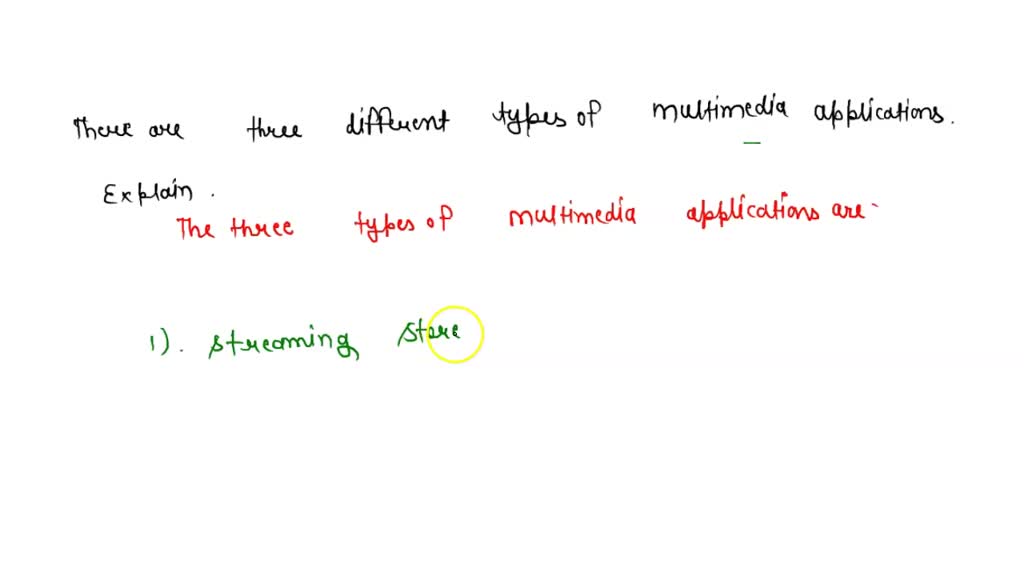 There are three different types of multimedia applications.
Explain.
The three types of multimedia applications are-
1). streaming store